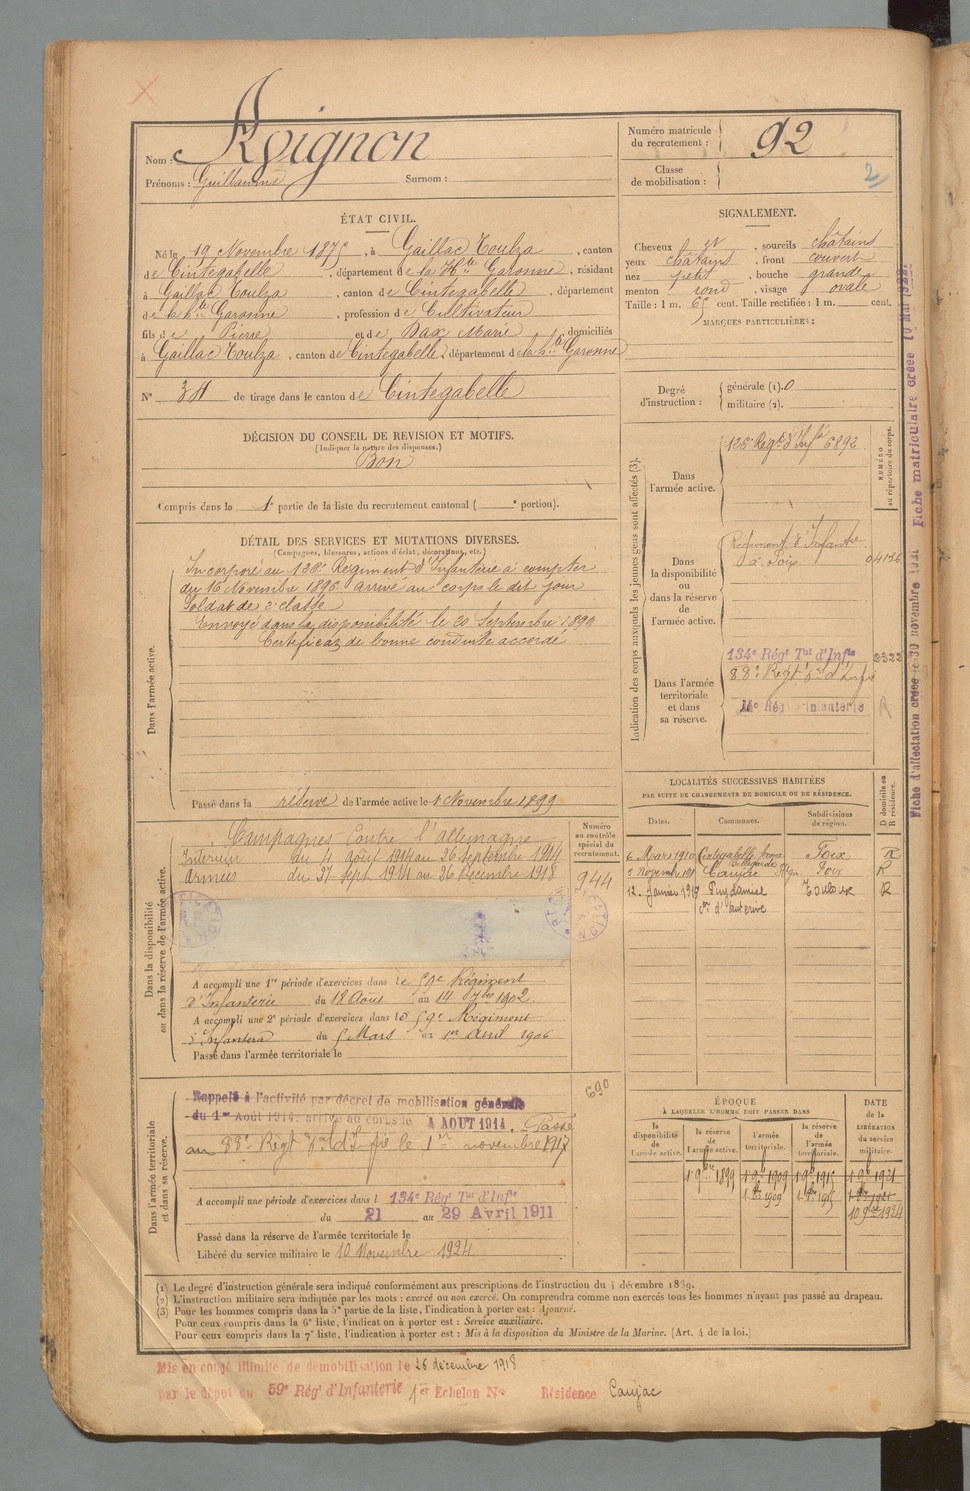 Nom : Avignon
Prénoms : Guillaume Surnom :
Numéro matricule du recrutement : 92
Classe de mobilisation :
2
ÉTAT CIVIL.
Né le 19 Novembre 1875, à Gaillac Toulza, canton
de Cintegabelle, département de la Hte Garonne, résidant
à Gaillac Toulza, canton de Cintegabelle, département
de la hte Garonne, profession de Cultivateur
fils de Pierre et de Dax Marie, domiciliés
à Gaillac Toulza, canton de Cintegabelle, département de la hte Garonne
N° 34 de tirage dans le canton de Cintegabelle
SIGNALEMENT.
Cheveux et, sourcils châtains
yeux châtains, front couvert
nez petit, bouche grande
menton rond, visage ovale
Taille : 1 m. 65 cent. Taille rectifiée : 1 m. cent.
MARQUES PARTICULIÈRES :
Degré d'instruction : générale (1). 0
militaire (2).
DÉCISION DU CONSEIL DE REVISION ET MOTIFS.
(Indiquer la nature des dispenses.)
Bon
Compris dans la 1e partie de la liste du recrutement cantonal ( e portion).
DÉTAIL DES SERVICES ET MUTATIONS DIVERSES.
(Campagnes, blessures, actions d'éclat, décorations, etc.)
Dans l'armée active.
Incorporé au 126e Régiment d'Infanterie à compter
du 16 Novembre 1896 arrivé au corps le dit jour
Soldat de 2e classe
Envoyé dans la disponibilité le 20 Septembre 1899
Certificat de bonne conduite accordé
Passé dans la réserve de l'armée active le 1 Novembre 1899
Indication des corps auxquels les jeunes gens sont affectés (3).
NUMÉRO au répertoire du corps.
Dans l'armée active.
126e Regt d'Infie 6892
Dans la disponibilité ou dans la réserve de l'armée active.
Régiment d'Infanterie
à Foix
Dans l'armée territoriale et dans sa réserve.
134e Régt Tal d'Infie
88e Regt Tal d'Infie
Régt Infanterie
Fiche d'affectation créée le 30 novembre Fiche matriculaire créée 10 Mai 1922
LOCALITÉS SUCCESSIVES HABITÉES
PAR SUITE DE CHANGEMENTS DE DOMICILE OU DE RÉSIDENCE.
Dates. Communes. Subdivisions de région. D domicile ou R résidence.
6 Mars 1910 Cintegabelle Foix R
Caujac Foix R
12 Janvier 1919 Puydaniel Toulouse R
con d'auterive
Dans la disponibilité ou dans la réserve de l'armée active.
Numéro au contrôle spécial du recrutement.
944
Campagnes Contre l'allemagne
Intérieur du 4 août 1914 au 26 septembre 1914
Armées du 27 Sept 1914 au 26 décembre 1918
A accompli une 1re période d'exercices dans le 59e Régiment
d'Infanterie du 18 Août au 14 7bre 1902.
A accompli une 2e période d'exercices dans le 59e Régiment
d'Infanterie du 5 Mars au 1er Avril 1906
Passé dans l'armée territoriale le
Dans l'armée territoriale et dans sa réserve.
690
Rappelé à l'activité par décret de mobilisation générale
du 1er Août 1914, arrivé au corps le 4 AOUT 1914. Passé
au 88e Régt Tal d'Infie le 1er novembre 1917
A accompli une période d'exercices dans l 134e Régt Tal d'Infie
du 21 au 29 Avril 1911
Passé dans la réserve de l'armée territoriale le
Libéré du service militaire le 10 Novembre 1924
ÉPOQUE
À LAQUELLE L'HOMME DOIT PASSER DANS
la disponibilité de l'armée active. la réserve de l'armée active. l'armée territoriale. la réserve de l'armée territoriale.
DATE de la LIBÉRATION du service militaire.
1 9bre 1899 1 9b 1909 1 9b 1915 1 9b 1921
1 9b 1909 1 9b 1915 1 9b 1921
10 9bre 1924
(1) Le degré d'instruction générale sera indiqué conformément aux prescriptions de l'instruction du 4 décembre 1889.
(2) L'instruction militaire sera indiquée par les mots : exercé ou non exercé. On comprendra comme non exercés tous les hommes n'ayant pas passé au drapeau.
(3) Pour les hommes compris dans la 5e partie de la liste, l'indication à porter est : Ajourné.
Pour ceux compris dans la 6e liste, l'indication à porter est : Service auxiliaire.
Pour ceux compris dans la 7e liste, l'indication à porter est : Mis à la disposition du Ministre de la Marine. (Art. 4 de la loi.)
Mis en congé illimité de démobilisation le 26 décembre 1918
par le dépôt du 59e Régt d'Infanterie 1er Echelon No Résidence Caujac